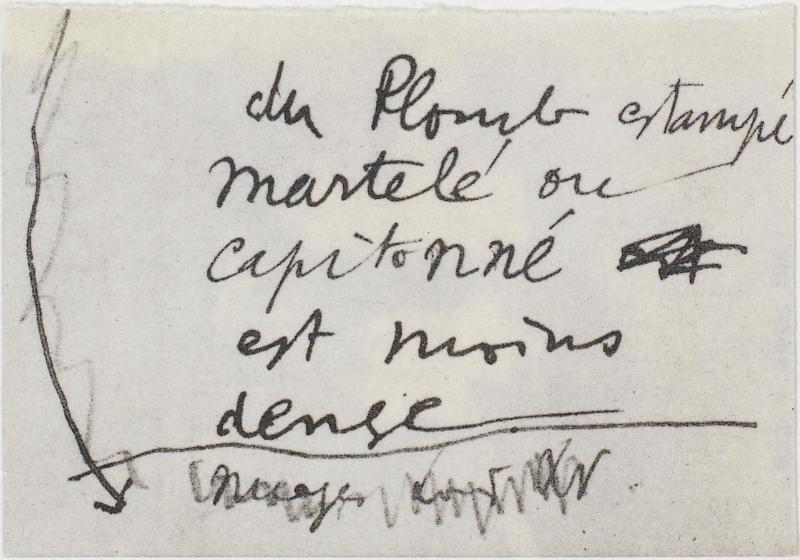 du Plomb estampé
martelé ou
capitonné
est moins
dense